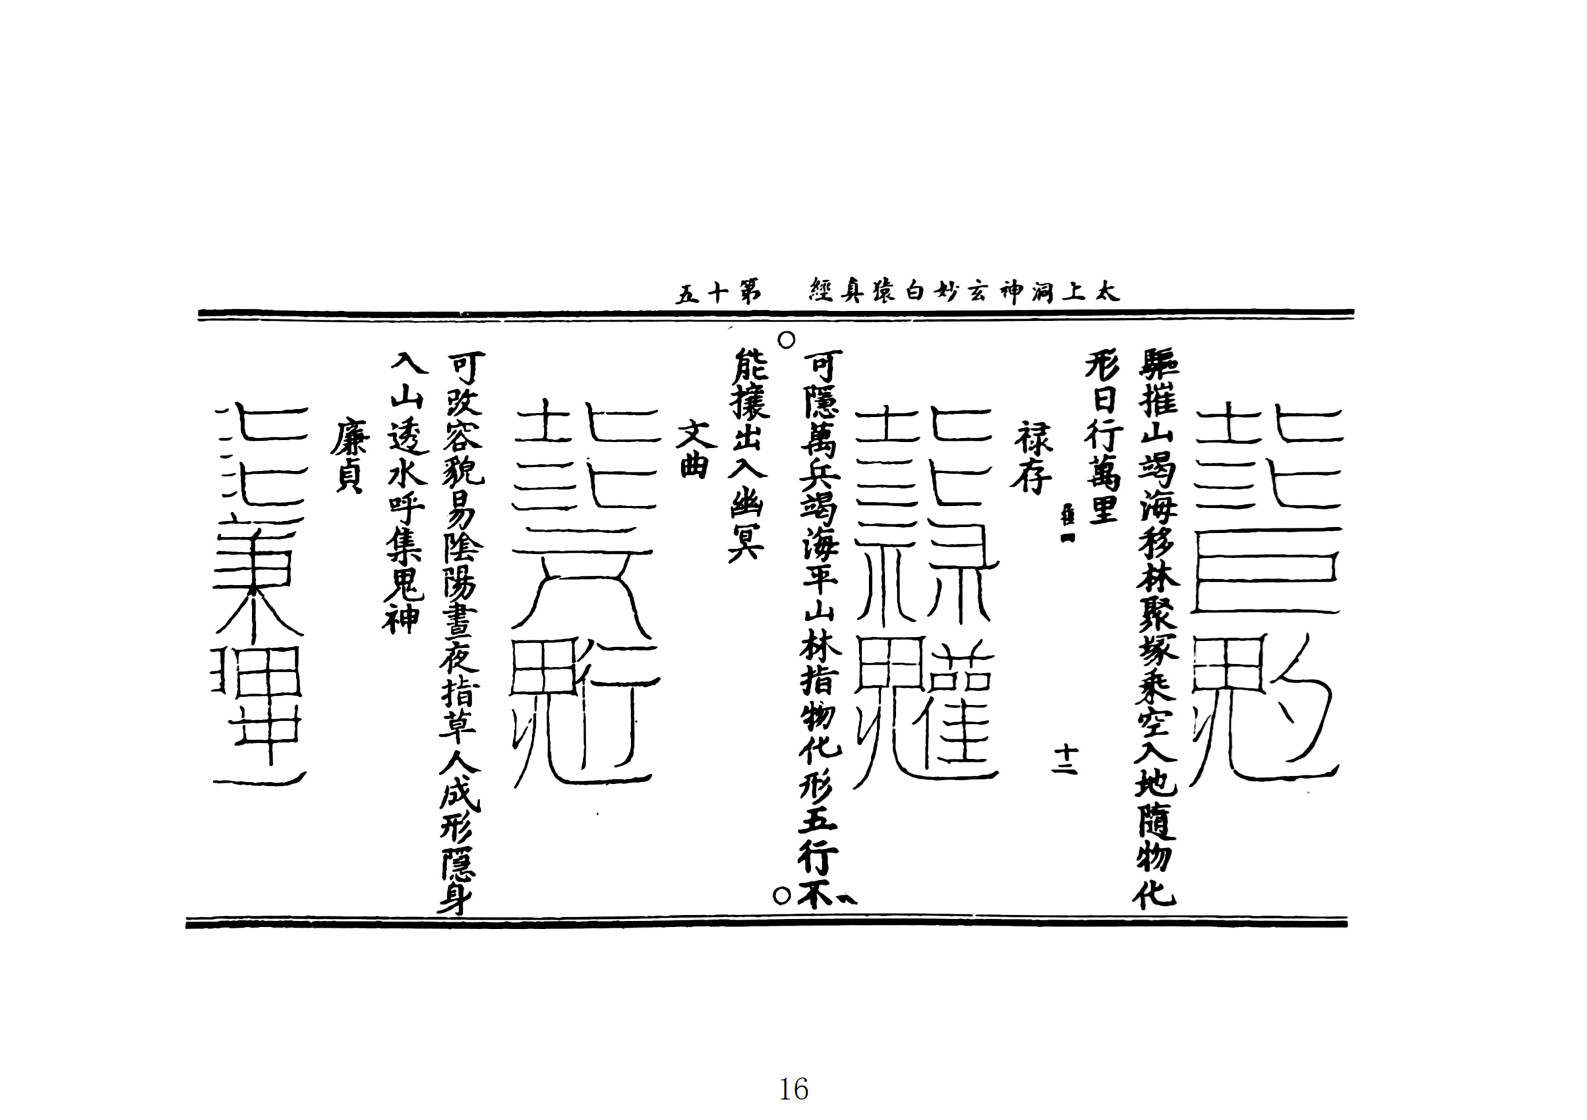 太上洞神玄妙白猿真經　第十五
驅摧山竭海移林聚塚乘空入地隨物化
形日行萬里
十二
禄存
可隱萬兵竭海平山林指物化形五行不
能攘出入幽冥
文曲
可改容貌易陰陽晝夜指草人成形隱身
入山透水呼集鬼神
廉貞
16